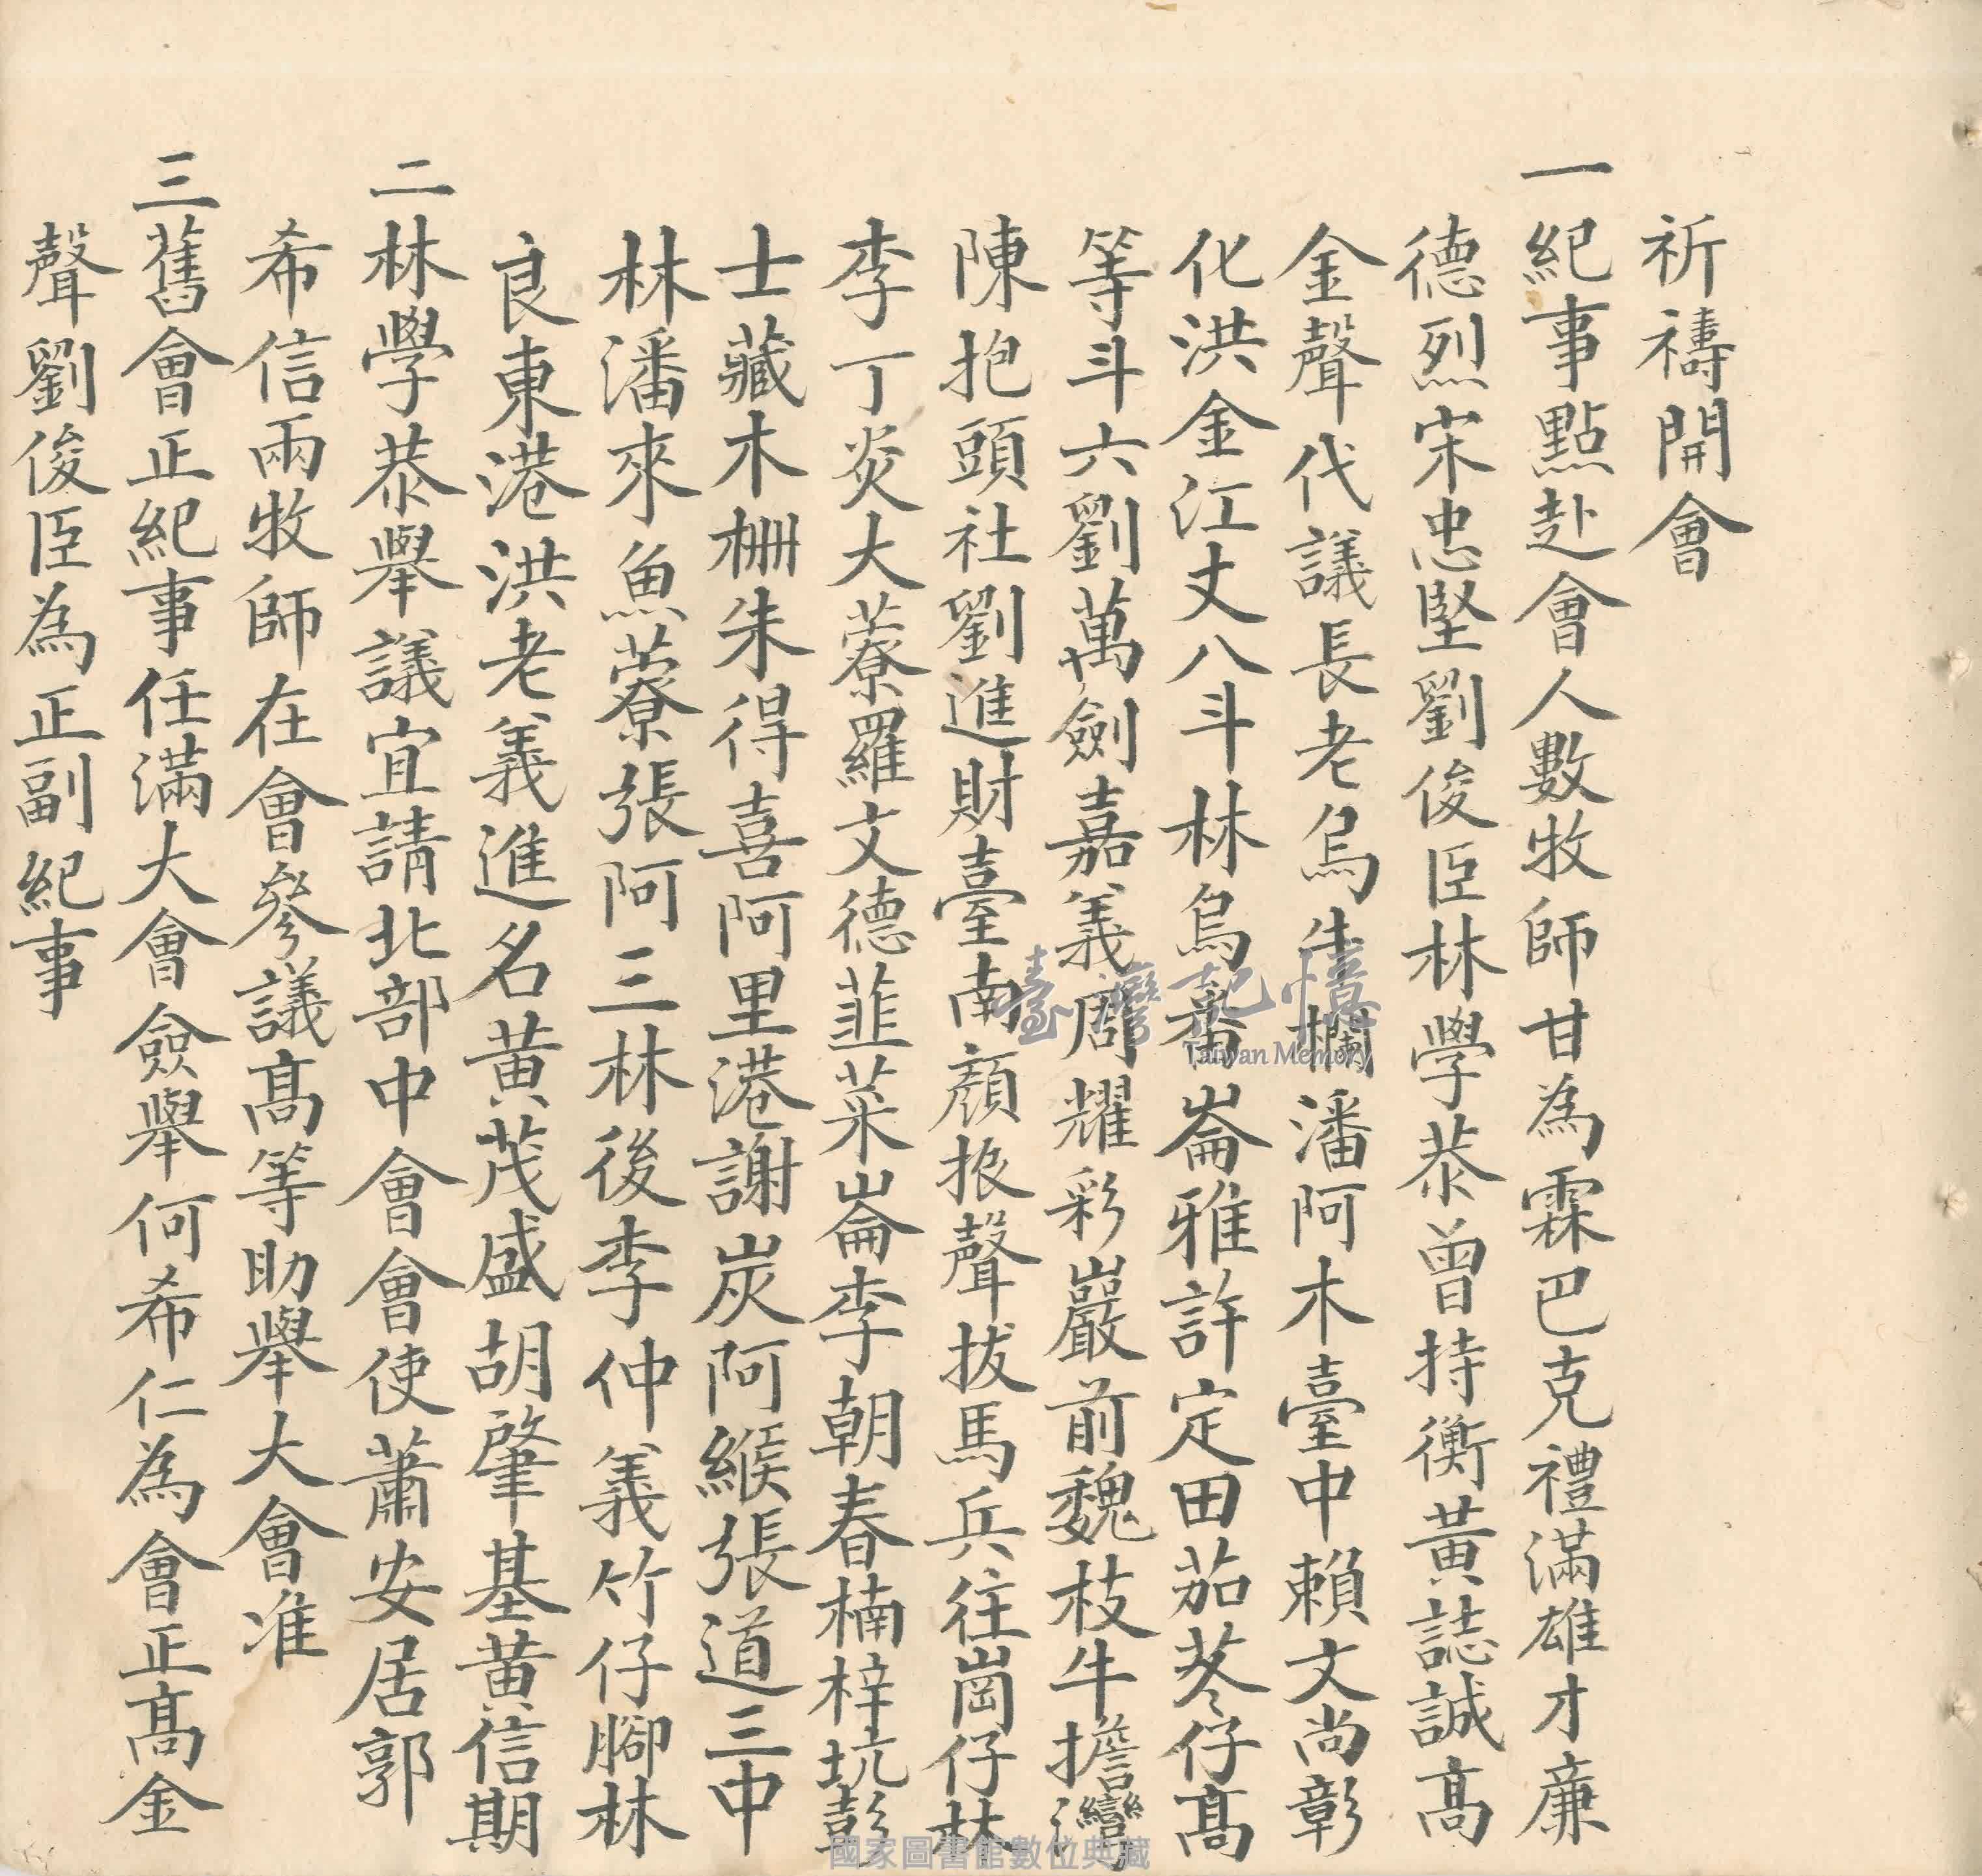 祈禱開會
一紀事點赴會人數牧師甘為霖巴克禮滿雄才廉
德烈宋忠堅劉俊臣林學恭曾持衡黃誌誠高
金聲代議長老烏牛欄潘阿木臺中賴文尚彰
化洪金江丈八斗林烏番崙雅許定田茄苳仔高
等斗六劉萬劍嘉義周耀彩巖前魏枝牛擔灣
陳抱頭社劉進財臺南顏振聲拔馬兵往崗仔林
李丁炎大藔羅文德韮菜崙李朝春楠梓坑彭
士藏木柵朱得喜阿里港謝炭阿緱張道三中
林潘來魚藔張阿三林後李仲義竹仔腳林
良東港洪老義進名黃茂盛胡肇基黃信期
二林學恭舉議宜請北部中會會使蕭安居郭
希信兩牧師在會參議高等助舉大會准
三舊會正紀事任滿大會僉舉何希仁為會正高金
聲劉俊臣為正副紀事
臺灣記憶
Taiwan Memory
國家圖書館數位典藏